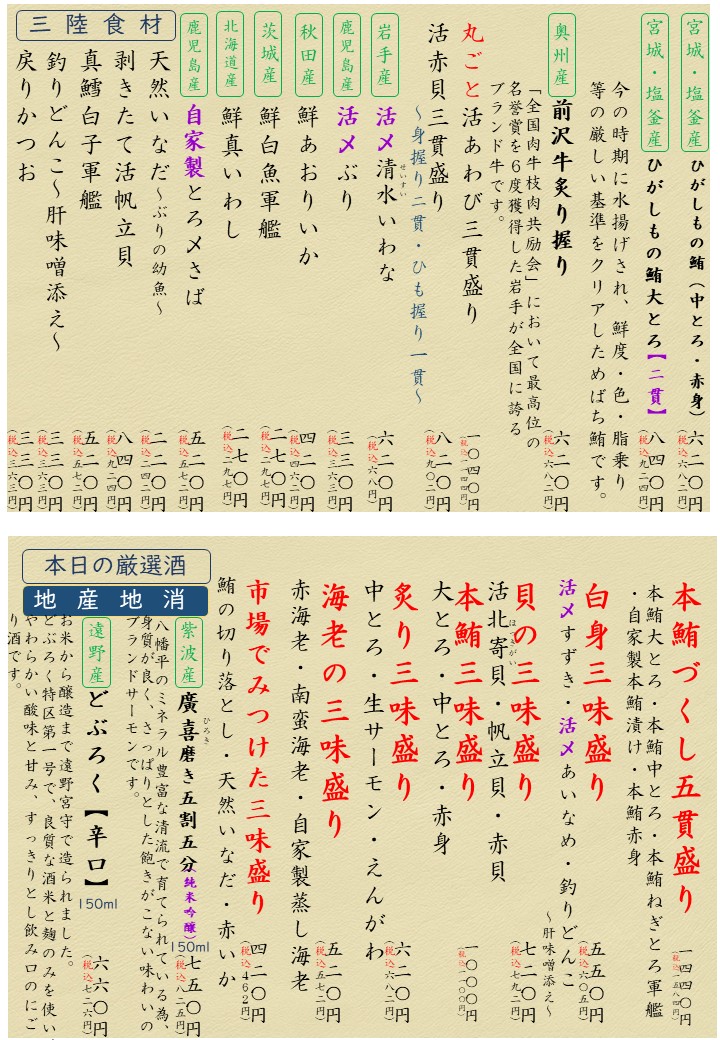 宮城・塩釜産 ひがしもの鮪(中とろ・赤身) 六二〇円
(税込六八二円)
宮城・塩釜産 ひがしもの鮪大とろ【二貫】 八四〇円
(税込九二四円)
今の時期に水揚げされ、鮮度・色・脂乗り
等の厳しい基準をクリアしためばち鮪です。
奥州産 前沢牛炙り握り 六二〇円
(税込六八二円)
「全国肉牛枝肉共励会」において最高位の
名誉賞を6度獲得した岩手が全国に誇る
ブランド牛です。
丸ごと活あわび三貫盛り 一〇四〇円
(税込一一四四円)
活赤貝三貫盛り 八二〇円
(税込九〇二円)
～身握り二貫・ひも握り一貫～
岩手産 活〆清水いわな 六二〇円
せいすい
(税込六八二円)
鹿児島産 活〆ぶり 三三〇円
(税込三六三円)
秋田産 鮮あおりいか 四二〇円
(税込四六二円)
茨城産 鮮白魚軍艦 二七〇円
(税込二九七円)
北海道産 鮮真いわし 二七〇円
(税込二九七円)
鹿児島産 自家製とろ〆さば 五二〇円
(税込五七二円)
三陸食材
天然いなだ～ぶりの幼魚～ 二二〇円
(税込二四二円)
剥きたて活帆立貝 八四〇円
(税込九二四円)
真鱈白子軍艦 五二〇円
(税込五七二円)
釣りどんこ～肝味噌添え～ 三三〇円
(税込三六三円)
戻りかつお 三三〇円
(税込三六三円)
本鮪づくし五貫盛り 一四四〇円
(税込一五八四円)
本鮪大とろ・本鮪中とろ・本鮪ねぎとろ軍艦
・自家製本鮪漬け・本鮪赤身
白身三味盛り 五五〇円
(税込六〇五円)
活〆すずき・活〆あいなめ・釣りどんこ
～肝味噌添え～
貝の三味盛り 七二〇円
(税込七九二円)
活北寄貝・帆立貝・赤貝
ほっきがい
本鮪三味盛り 一〇〇〇円
(税込一一〇〇円)
大とろ・中とろ・赤身
炙り三味盛り 六二〇円
(税込六八二円)
中とろ・生サーモン・えんがわ
海老の三味盛り 五二〇円
(税込五七二円)
赤海老・南蛮海老・自家製蒸し海老
市場でみつけた三味盛り 四二〇円
(税込462円)
鮪の切り落とし・天然いなだ・赤いか
本日の厳選酒
地産地消
紫波産 廣喜磨き五割五分(純米吟醸)150ml 七五〇円
ひろき
(税込八二五円)
八幡平のミネラル豊富な清流で育てられている為、
身質が良く、さっぱりとした飽きがこない味わいの
ブランドサーモンです。
遠野産 どぶろく【辛口】 150ml 六六〇円
(税込七二六円)
お米から醸造まで遠野宮守で造られました。
どぶろく特区第一号で、良質な酒米と麹のみを使い、
やわらかい酸味と甘み、すっきりとし飲み口のにご
り酒です。